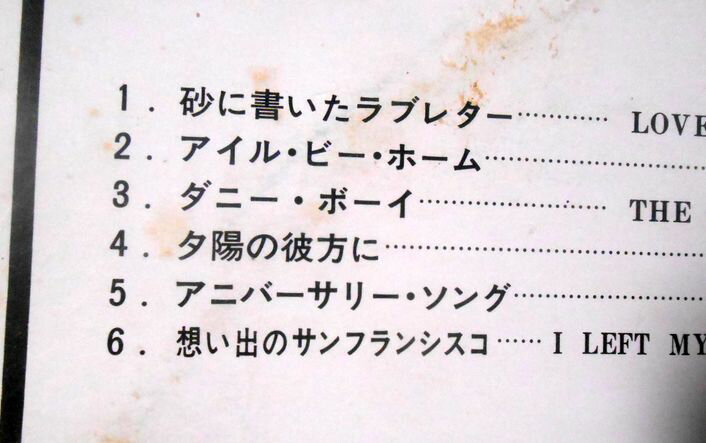 1. 砂に書いたラブレター………… LOVE
2. アイル・ビー・ホーム…………………………
3. ダニー・ボーイ…………………… THE
4. 夕陽の彼方に……………………………………
5. アニバーサリー・ソング……………………
6. 想い出のサンフランシスコ…… I LEFT MY